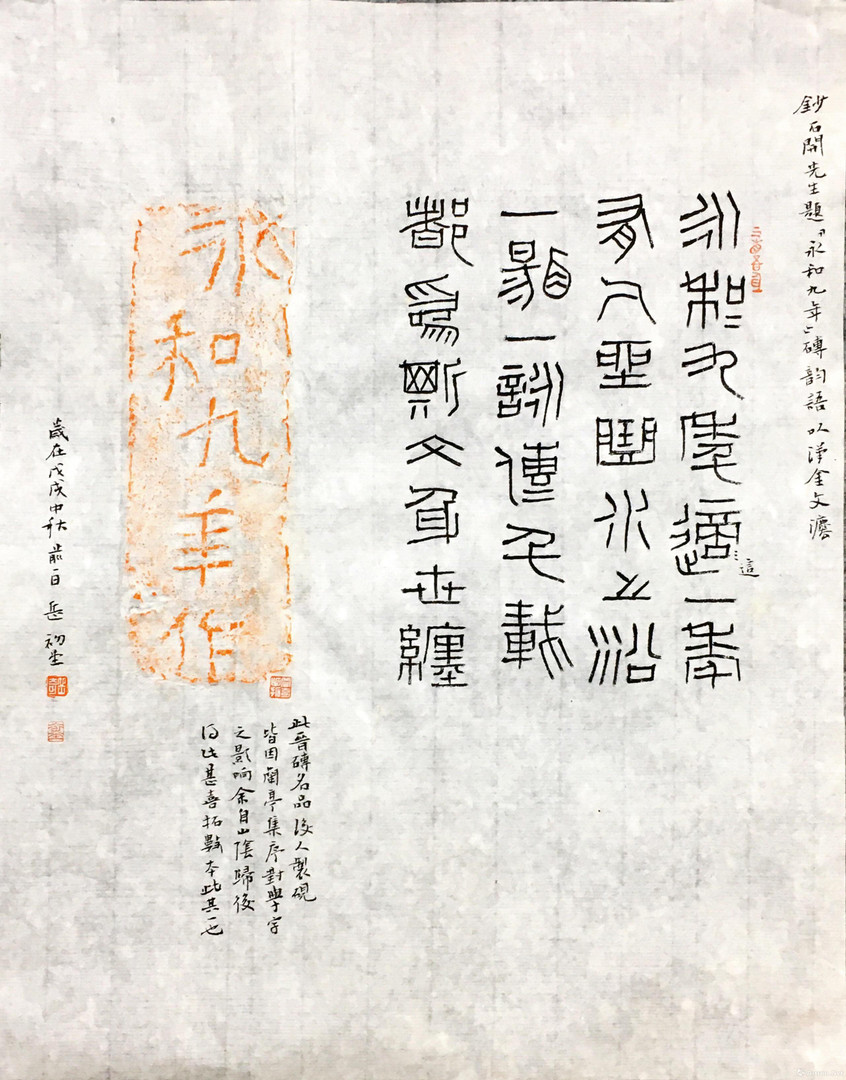 鈔石開先生題「永和九年」磚韵語以漢金文
永和九年適一年
這
有人水之沿
一觴一詠傳千載
都為斯文身世纏
永和九年作
此晉磚名品後人製硯
皆因蘭亭集序對學字
之影响余自山陰歸後
得此甚喜拓數本此其一也
歲在戊戌中秋前一日岳初